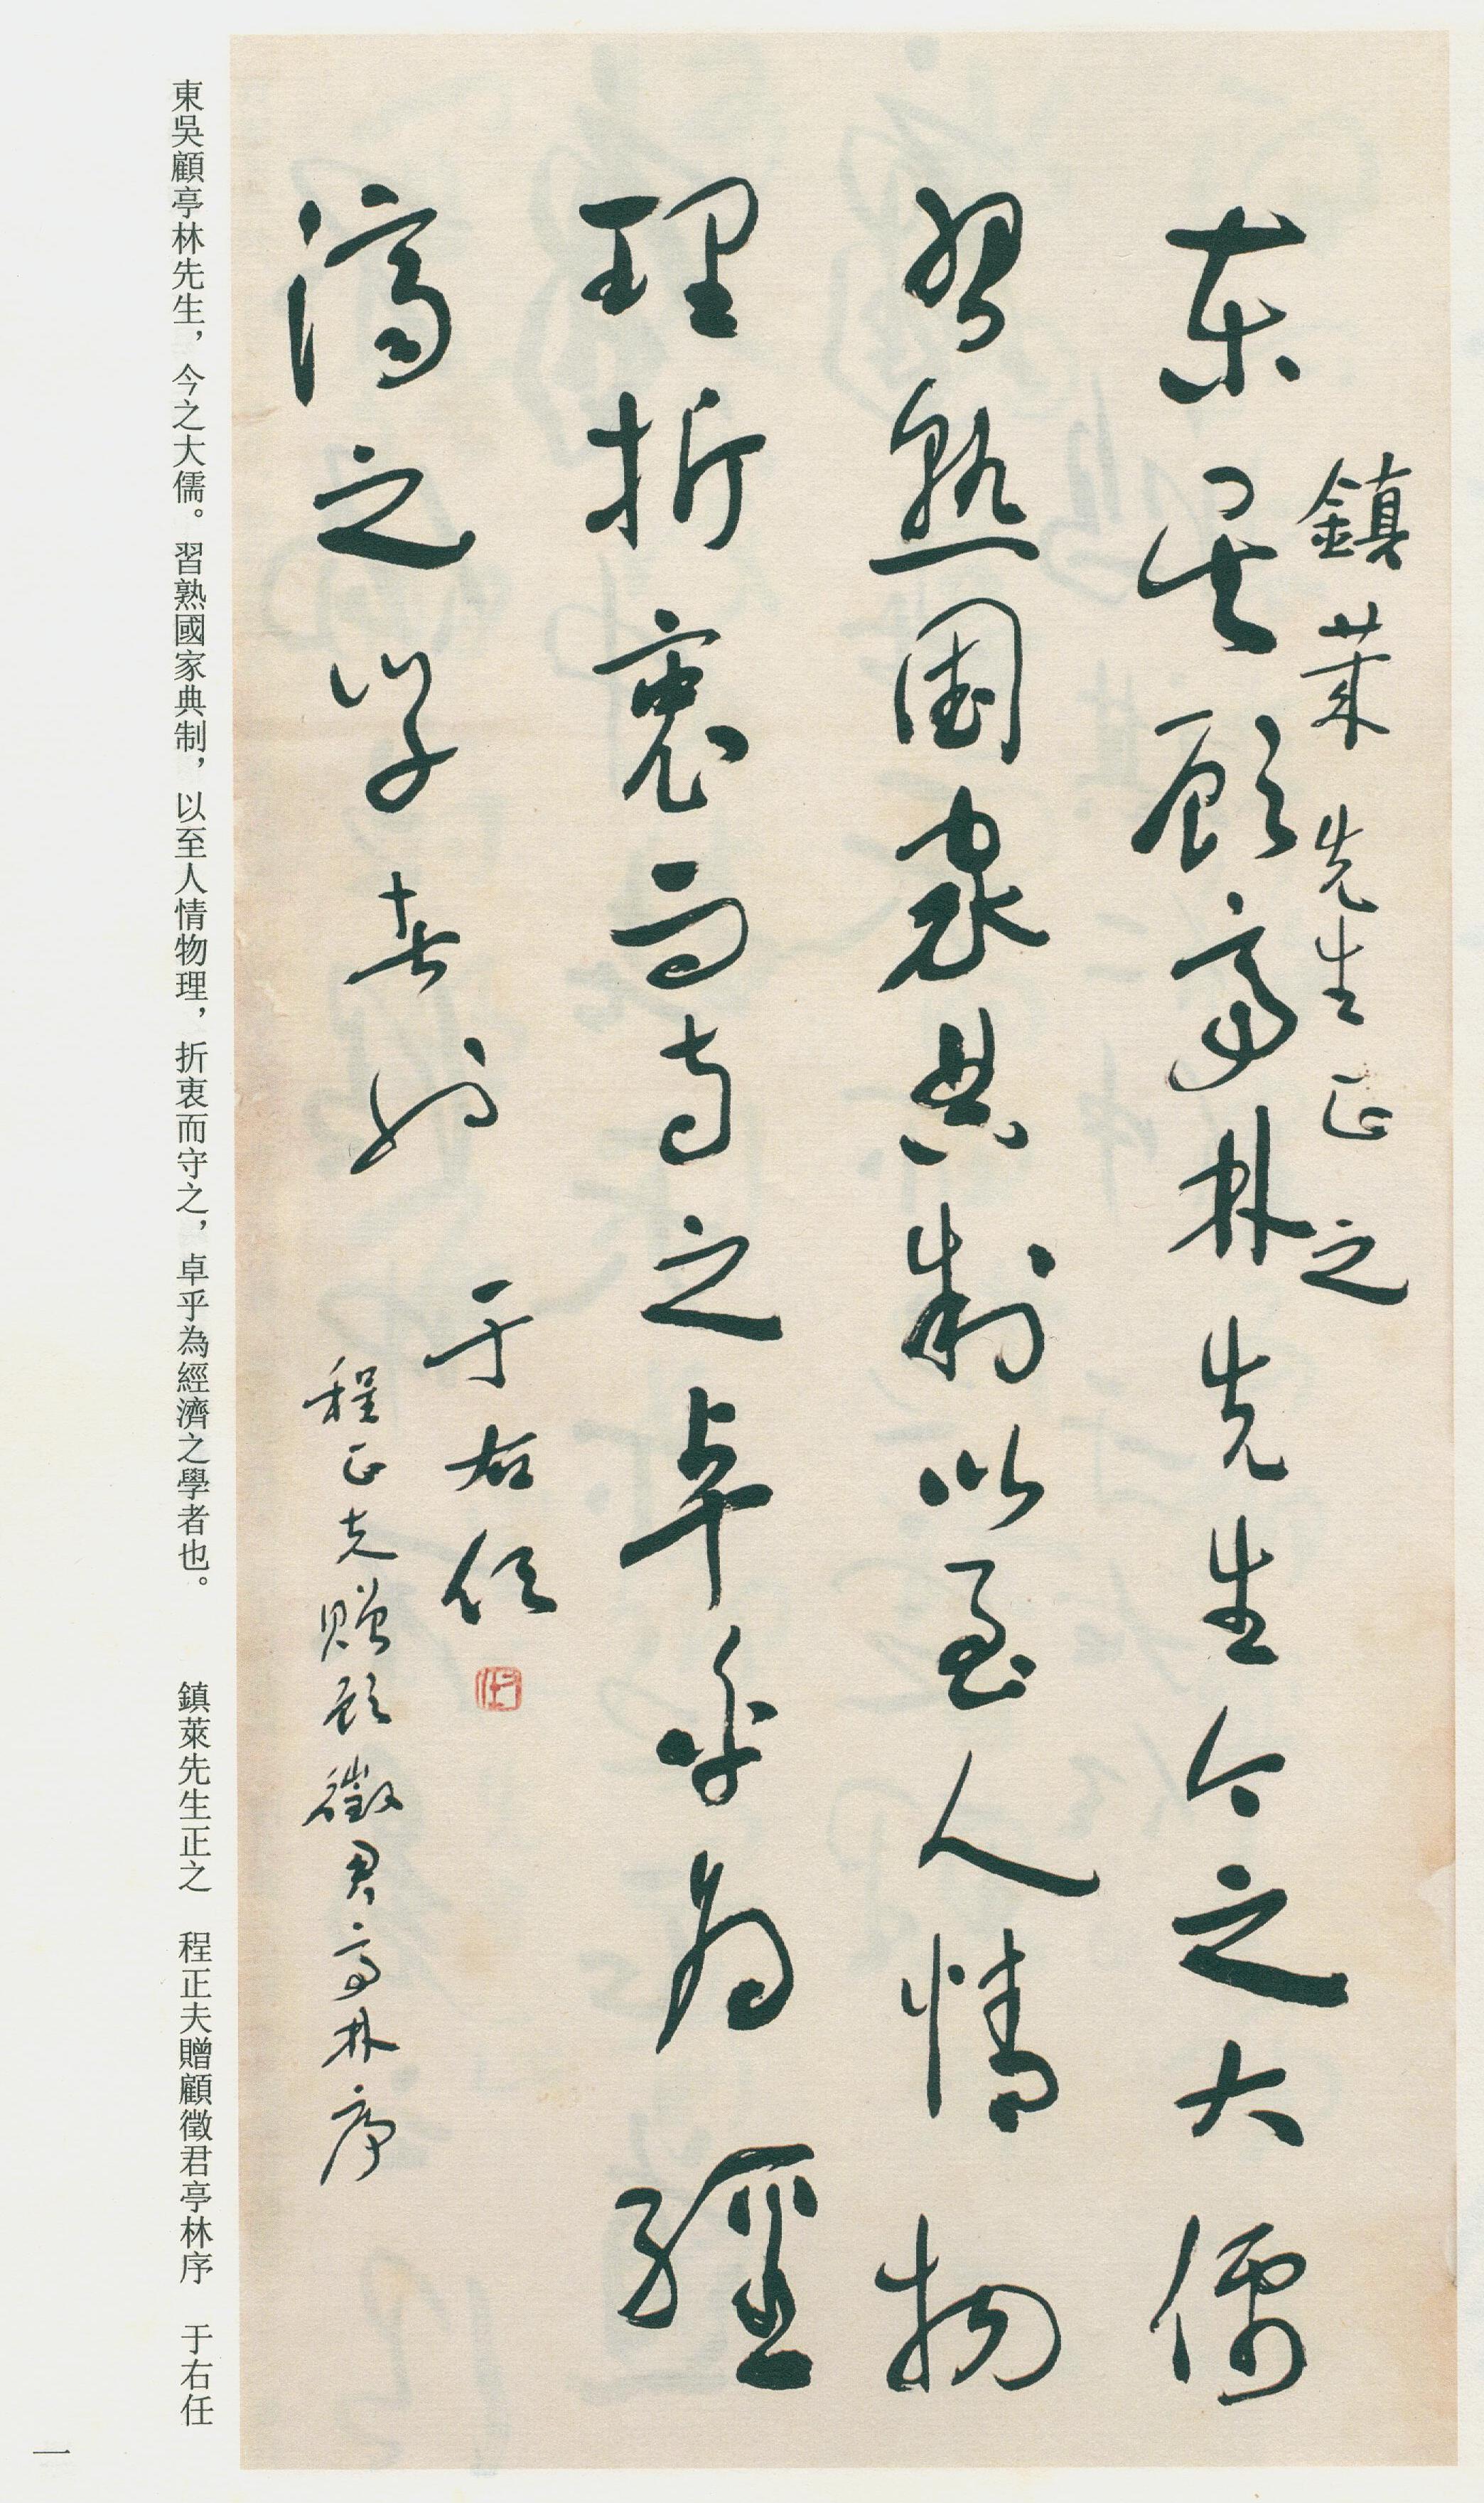 鎮萊先生正之
東吳顧亭林先生今之大儒
習熟國家典制以至人情物
理折衷而守之卓乎為經
濟之學者也
于右任
程正夫贈顧徵君亭林序
東吳顧亭林先生，今之大儒。習熟國家典制，以至人情物理，折衷而守之，卓乎為經濟之學者也。 鎮萊先生正之 程正夫贈顧徵君亭林序 于右任
一